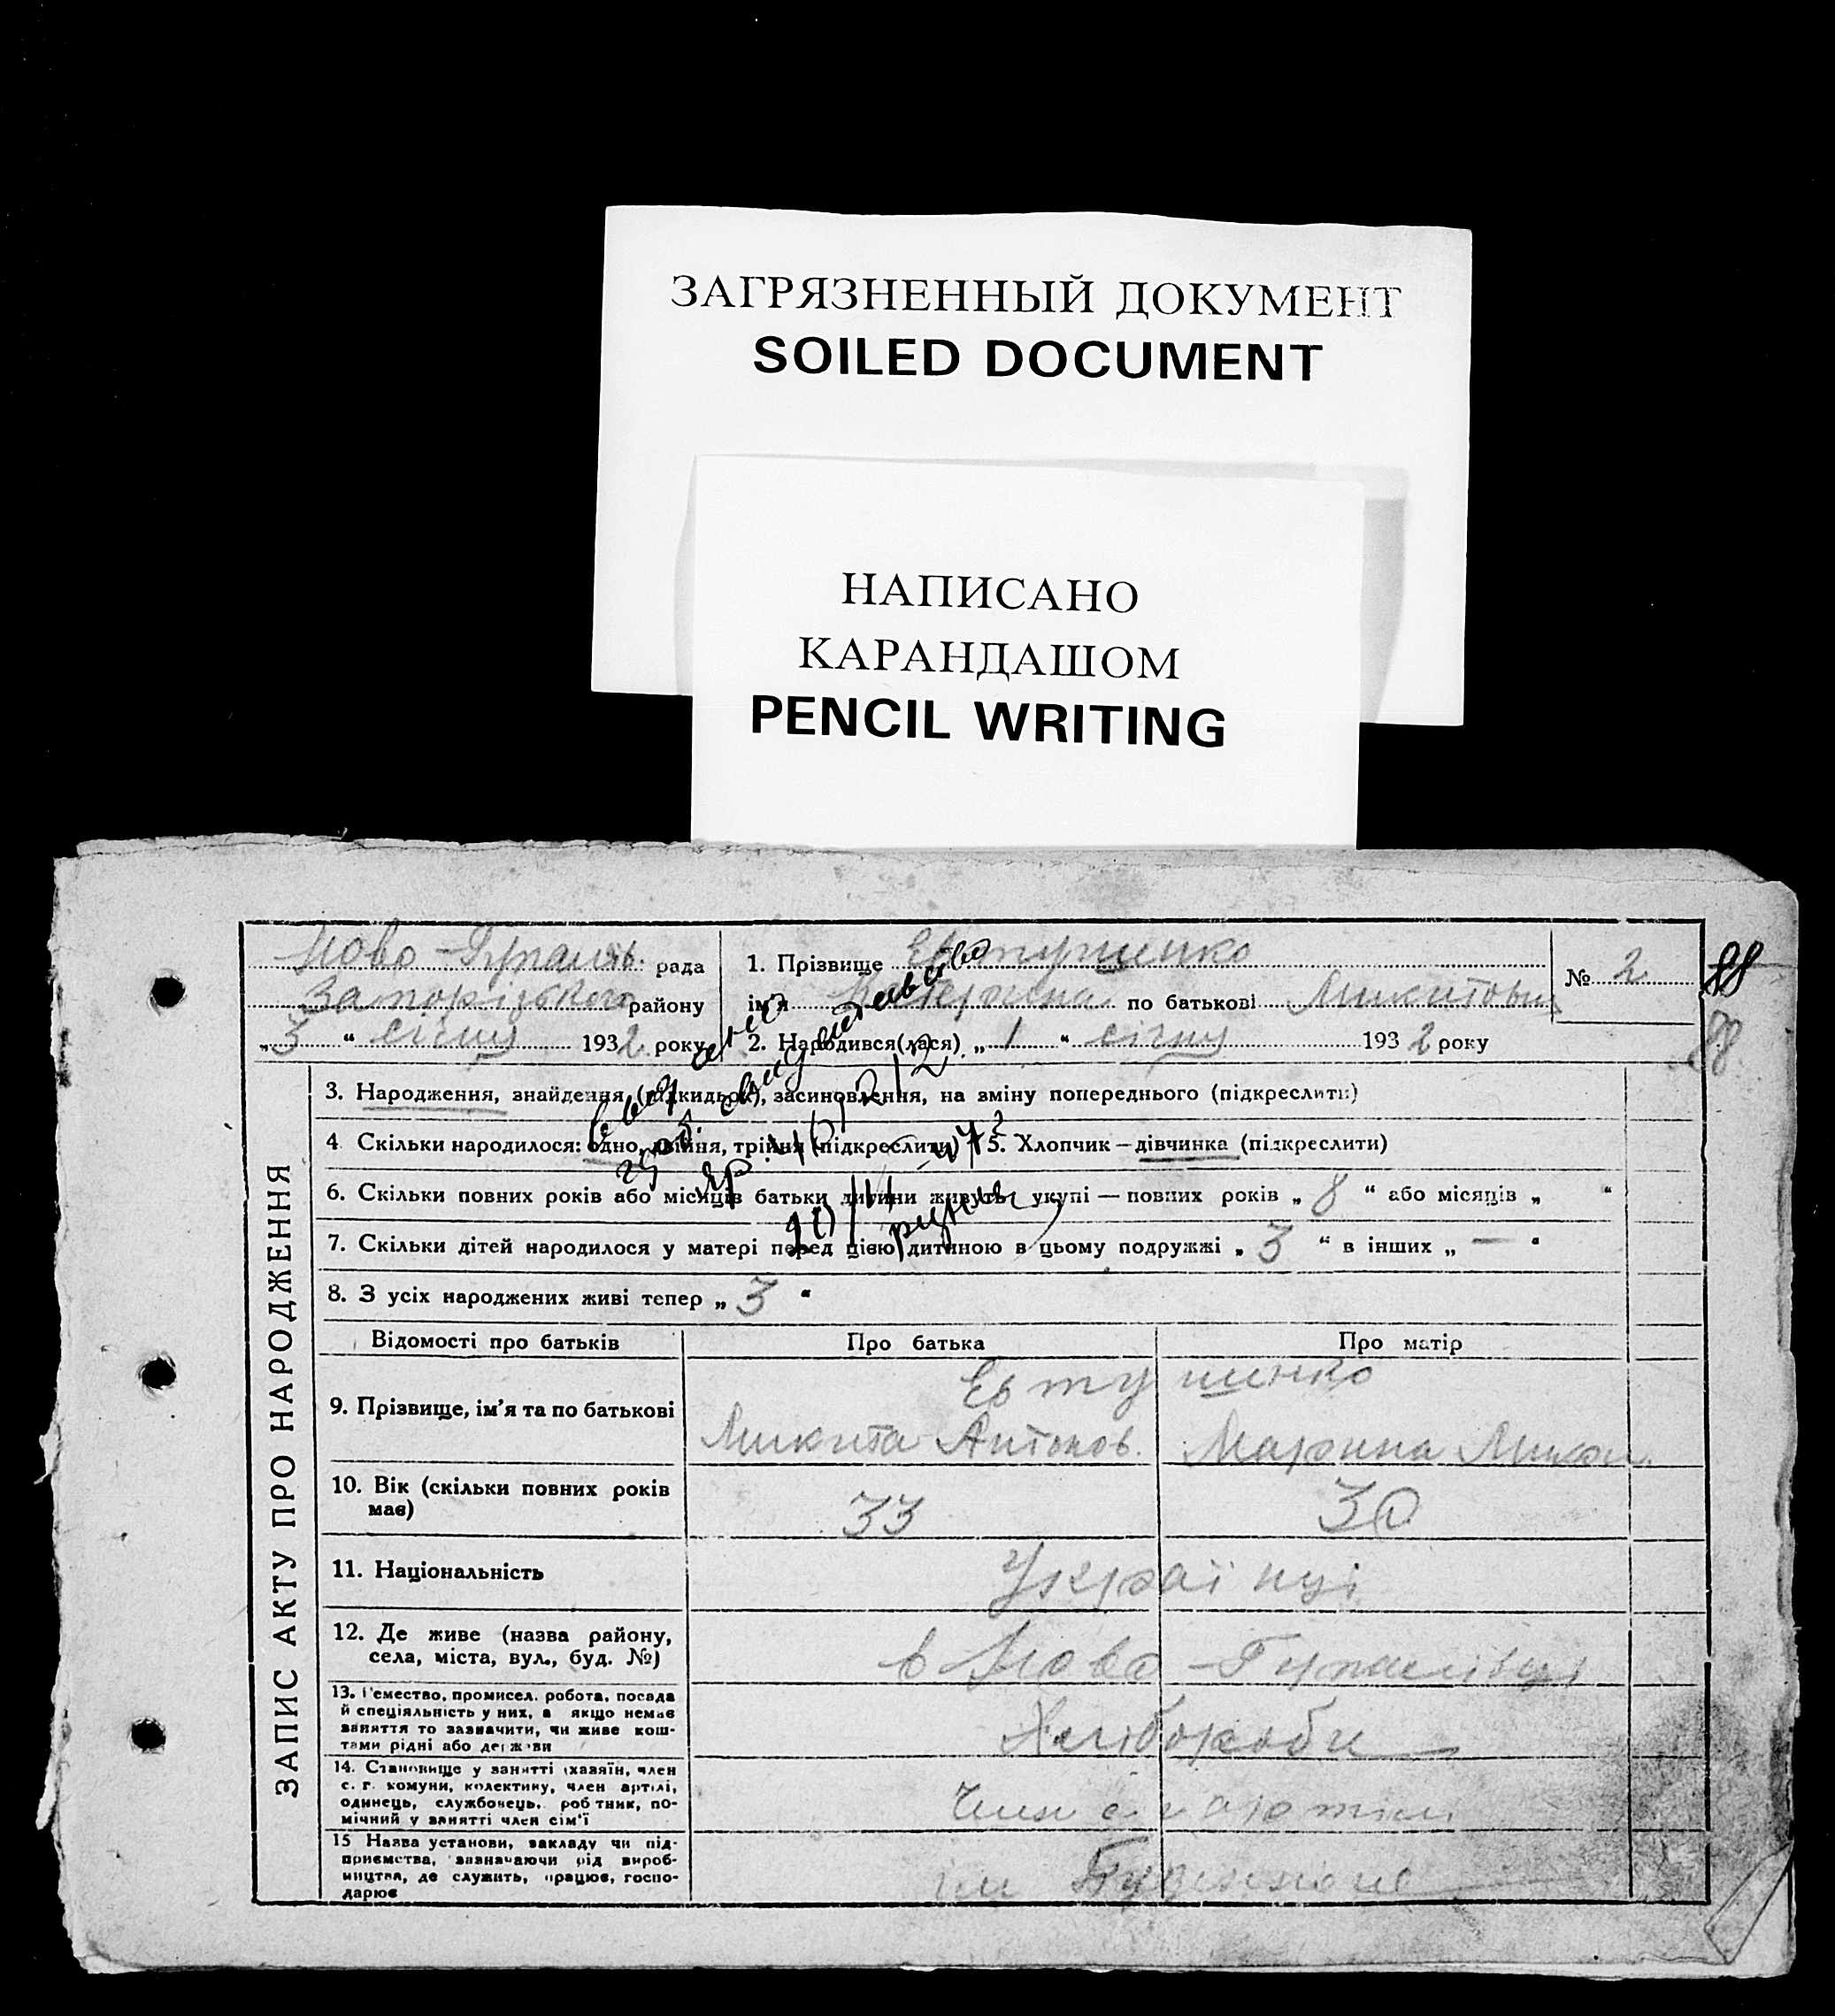 ЗАГРЯЗНЕННЫЙ ДОКУМЕНТ
SOILED DOCUMENT
НАПИСАНО
КАРАНДАШОМ
PENCIL WRITING
Ново- рада
Запорізького району
„3“ січня 1932 року
1. Прізвище Евтушенко
ім'я Катерина по батькові Микитовн
2. Народився(лася) „1“ січня 1932 року
№ 2
88
ЗАПИС АКТУ ПРО НАРОДЖЕННЯ
3. Народження, знайдення (підкидьок), засиновлення, на зміну попереднього (підкреслити)
4 Скільки народилося: одно, двійня, трійня (підкреслити) 5. Хлопчик – дівчинка (підкреслити)
6. Скільки повних років або місяців батьки дитини живуть укупі — повних років „8“ або місяців „ “
7. Скільки дітей народилося у матері перед цією дитиною в цьому подружжі „3“ в інших „—“
8. З усіх народжених живі тепер „3“
Відомості про батьків Про батька Про матір
9. Прізвище, ім'я та по батькові Евтушенко
Микита Антонов. Марина
10. Вік (скільки повних років
має) 33 30
11. Національність Українці
12. Де живе (назва району,
села, міста, вул., буд. №) в Ново-
13. Ремество, промисел, робота, посада
й спеціяльність у них, а якщо немає
заняття то зазначити, чи живе кош-
тами рідні або держави Хлібороби
14. Становище у занятті (хазяїн, член
с. г. комуни, колективу, член артілі,
одинець, службовець, робітник, по-
мічний у занятті член сім'ї Член с. г артіли
15 Назва установи, закладу чи під-
приємства, зазначаючи рід вироб-
ництва, де служить, працює, госпо-
дарює ім Будьонного